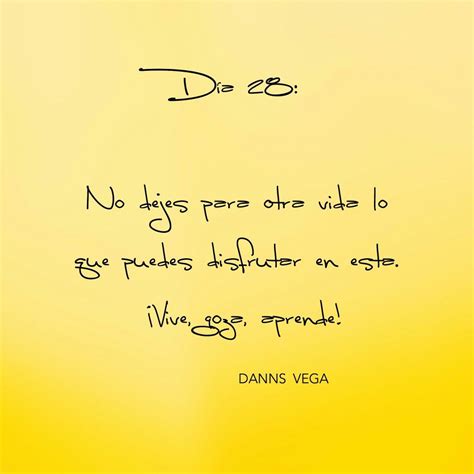 Día 28:
No dejes para otra vida lo
que puedes disfrutar en esta.
¡Vive, goza, aprende!
DANNS VEGA